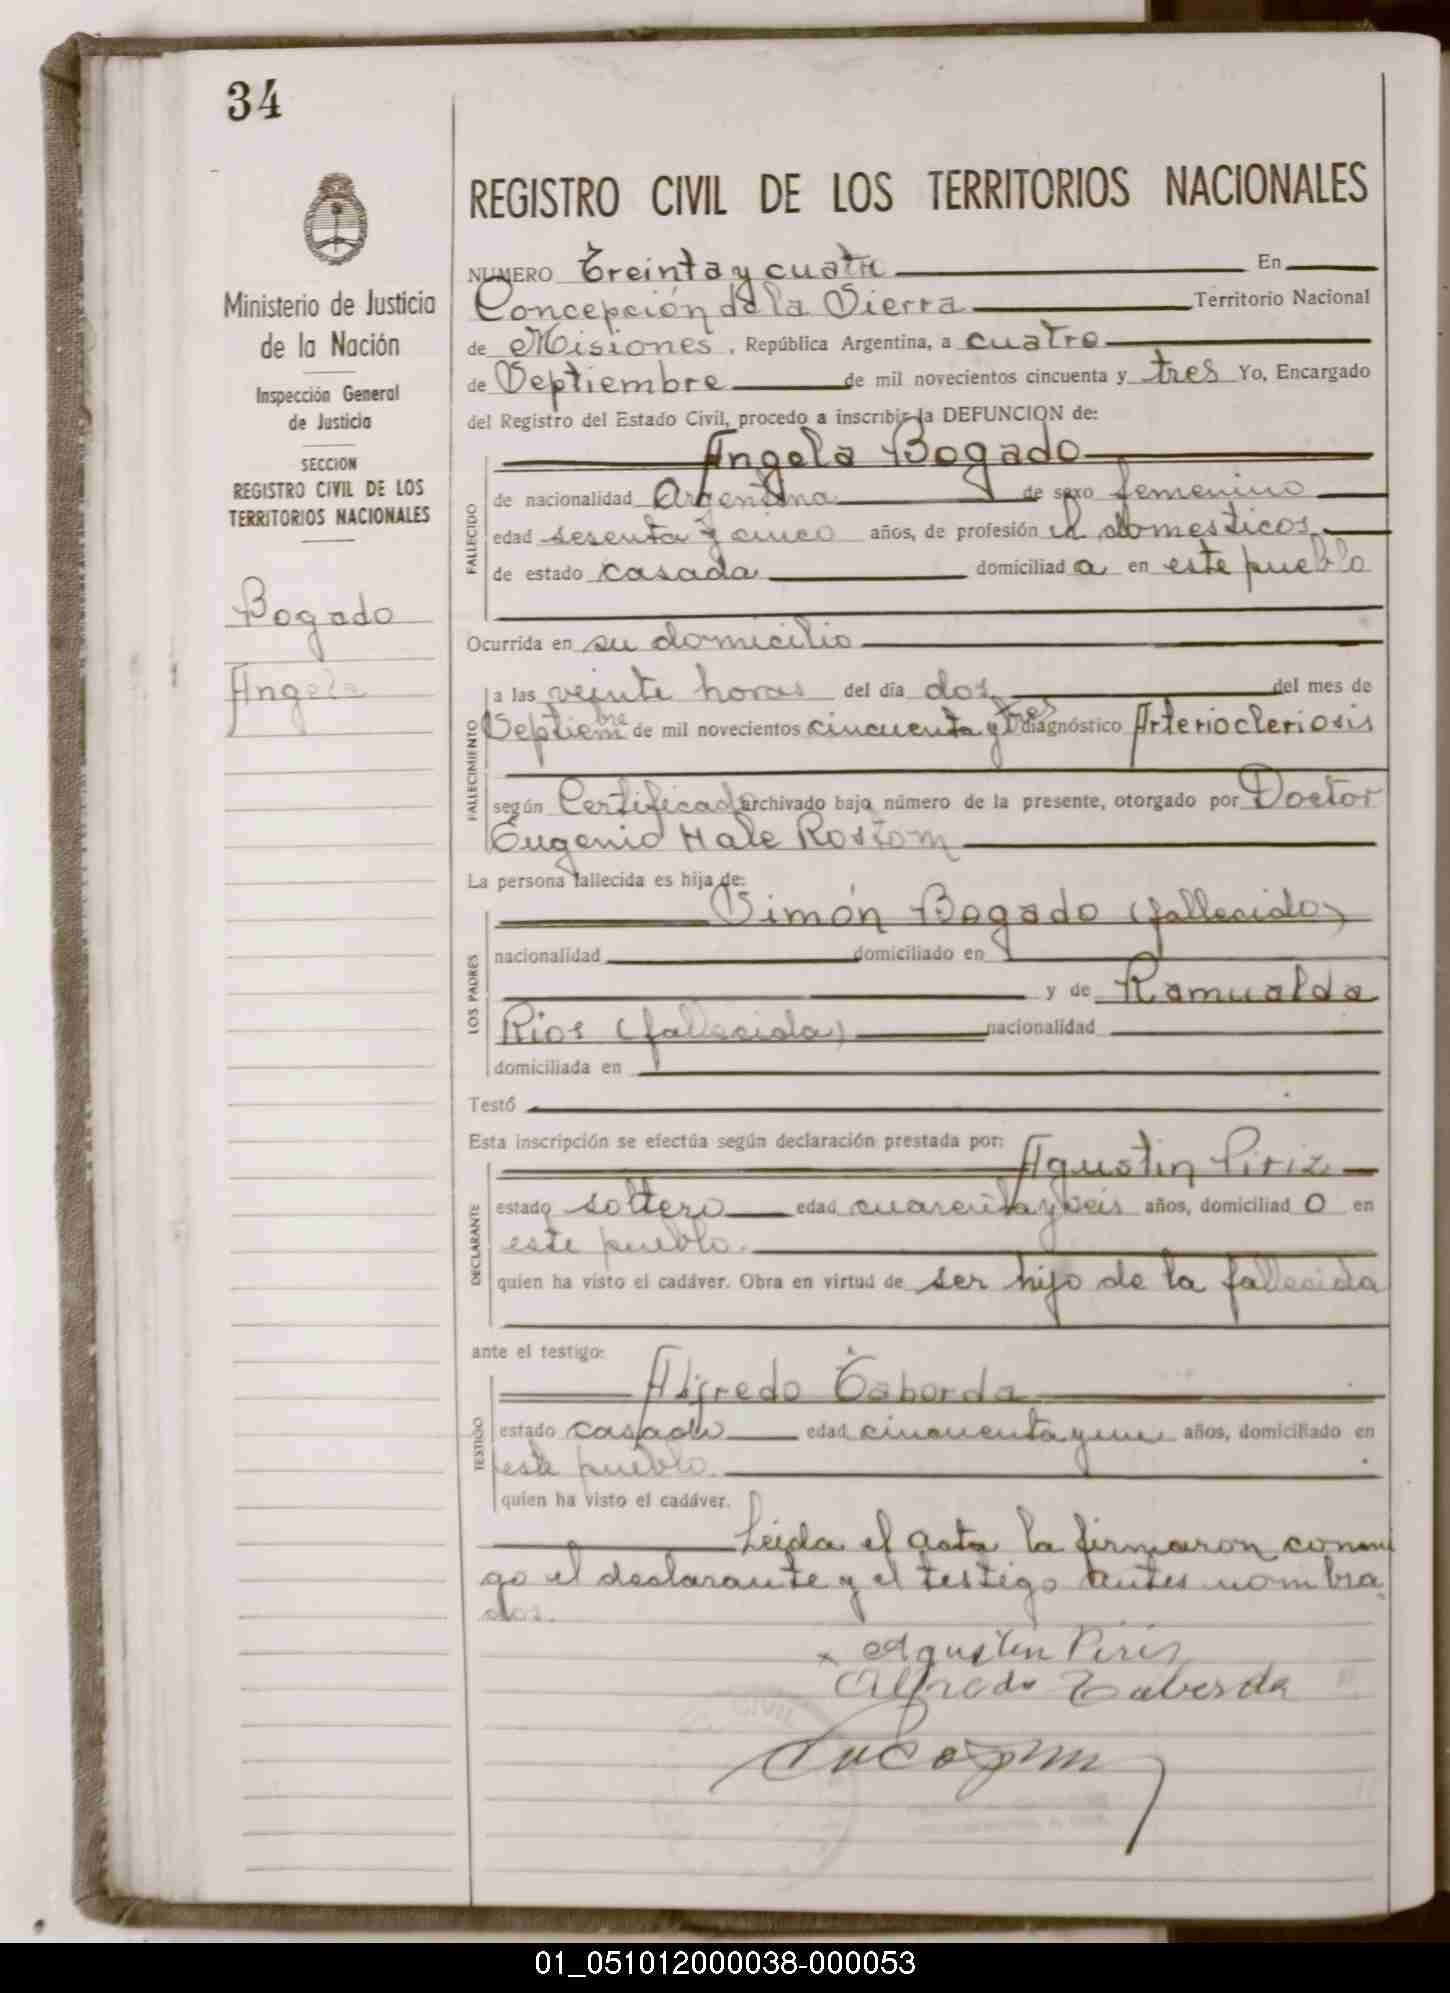 34
REGISTRO CIVIL DE LOS TERRITORIOS NACIONALES
Ministerio de Justicia
de la Nación
Inspección General
de Justicia
SECCION
REGISTRO CIVIL DE LOS
TERRITORIOS NACIONALES
Bogado
Angela
NUMERO Treinta y cuatro En
Concepción de la Sierra Territorio Nacional
de Misiones, República Argentina, a cuatro
de Septiembre de mil novecientos cincuenta y tres Yo, Encargado
del Registro del Estado Civil, procedo a inscribir la DEFUNCION de:
Angela Bogado
FALLECIDO
de nacionalidad Argentina de sexo femenino
edad sesenta y cinco años, de profesión domesticos
de estado casada domiciliad a en este pueblo
Ocurrida en su domicilio
FALLECIMIENTO
a las veinte horas del día dos del mes de
Septiembre de mil novecientos cincuenta y tres diagnóstico Arteriocleriosis
según Certificado archivado bajo número de la presente, otorgado por Doctor
Eugenio Hale Rostom
La persona fallecida es hija de:
LOS PADRES
Simón Bogado (fallecido)
nacionalidad domiciliado en
y de Ramualda
Rios (fallecida) nacionalidad
domiciliada en
Testó
Esta inscripción se efectúa según declaración prestada por:
DECLARANTE
Agustin Piriz
estado soltero edad cuarenta y seis años, domiciliad o en
este pueblo.
quien ha visto el cadáver. Obra en virtud de ser hijo de la fallecida
ante el testigo:
TESTIGO
Alfredo Taborda
estado casado edad cincuenta y un años, domiciliado en
este pueblo.
quien ha visto el cadáver.
Leida el acta la firmaron conmi
go el declarante y el testigo antes nombra
dos.
x Agustin Piris
Alfredo Taborda
CIVIL
01_051012000038-000053